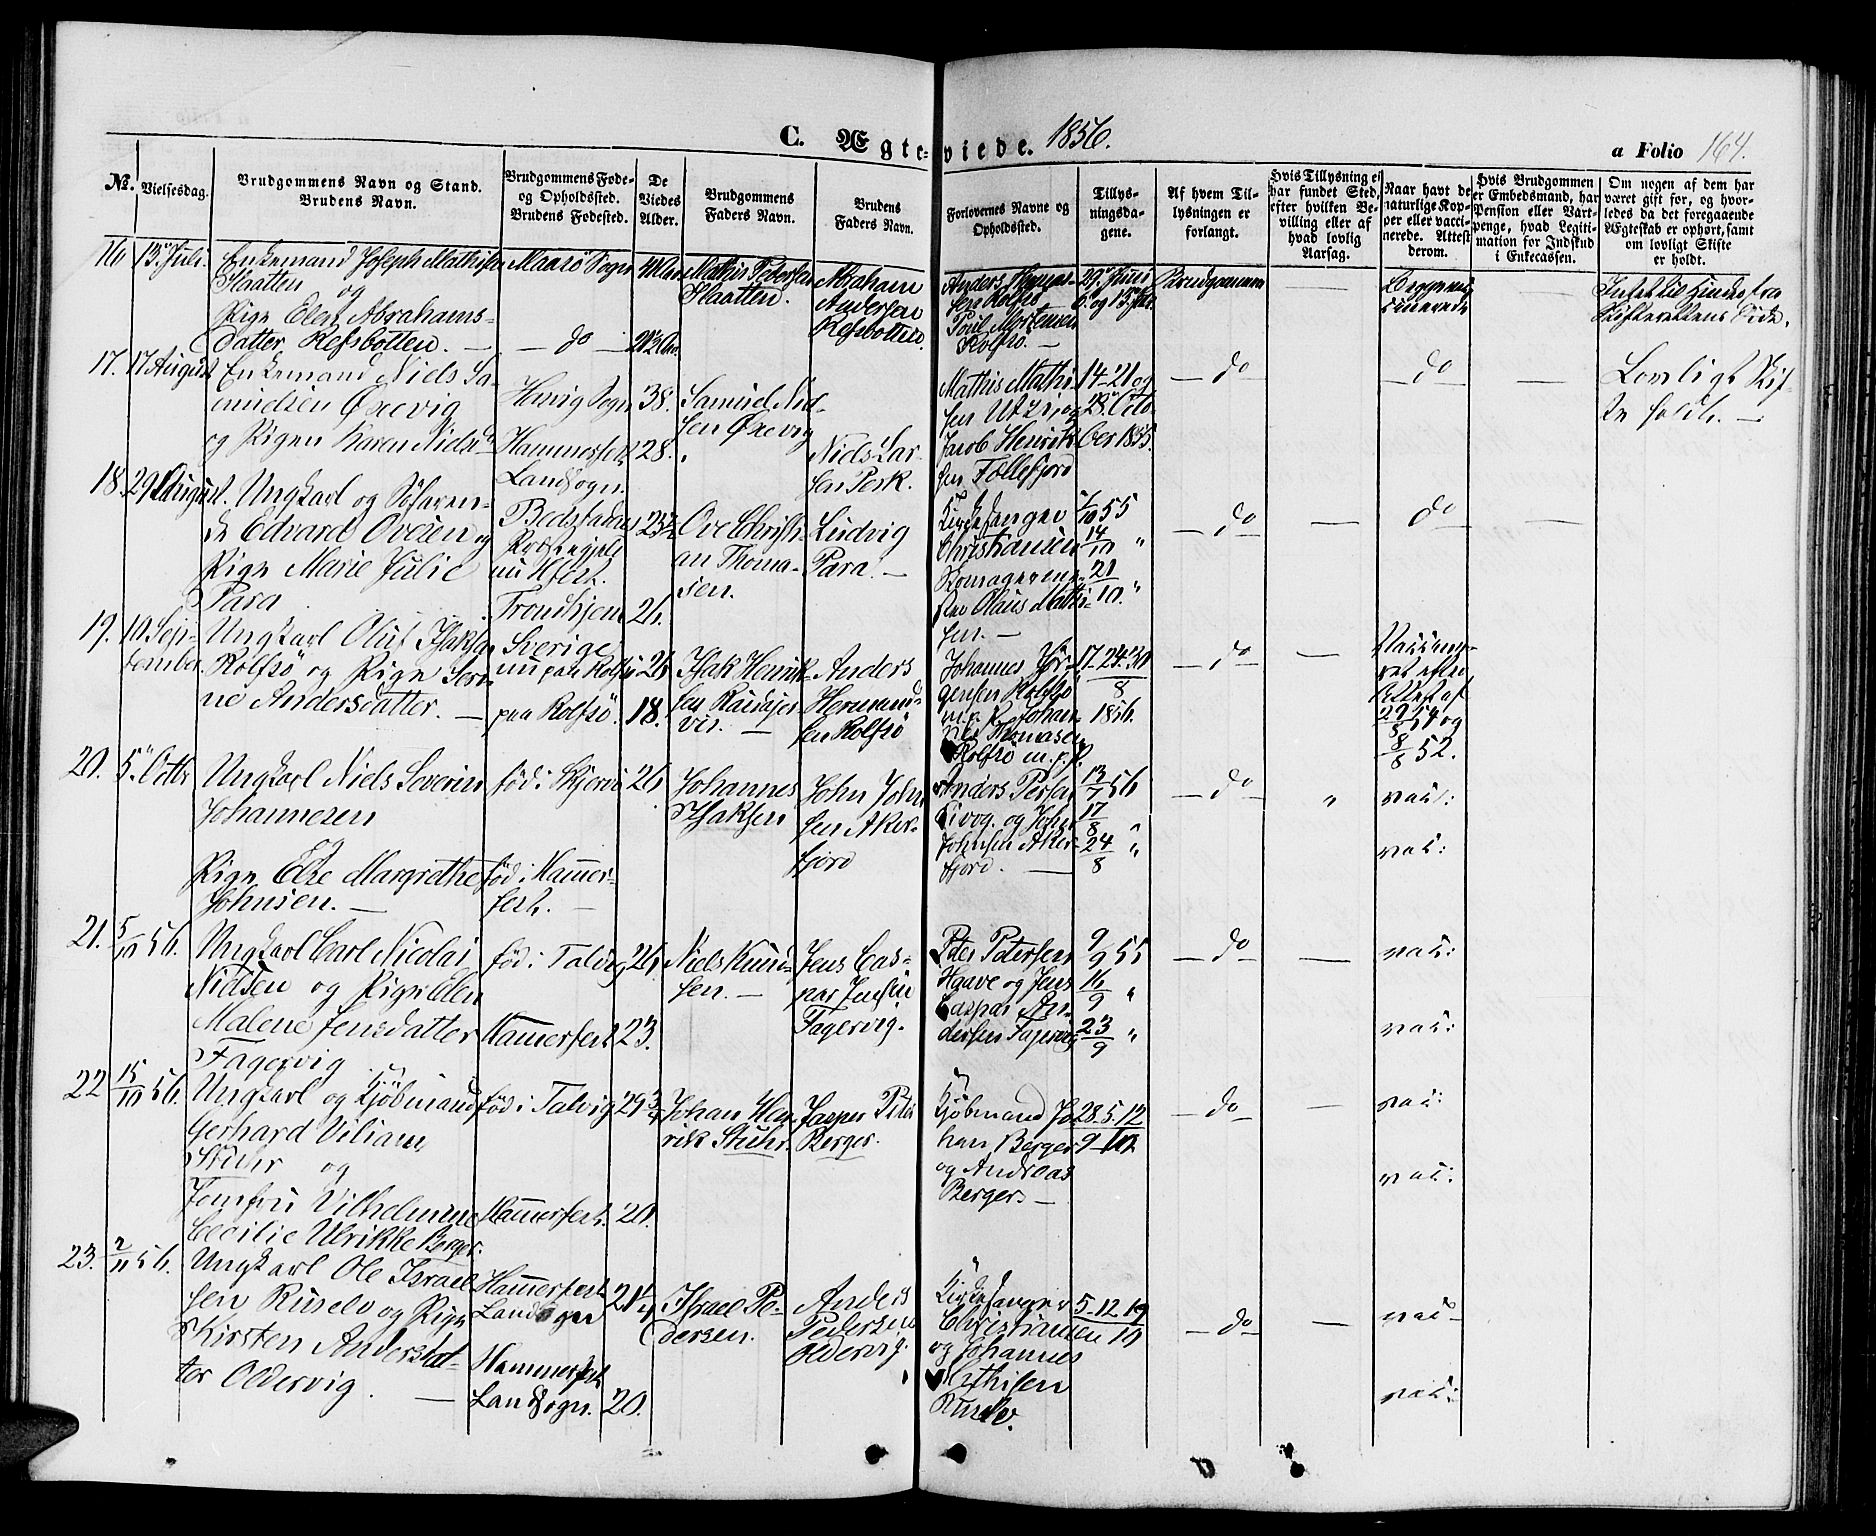 C. Ægteviede. 1856.
a Folio 164.
No.
Vielsesdag.
Brudgommens Navn og Stand.
Brudens Navn.
Brudgommens Føde-
og Opholdssted.
Brudens Fødested.
De
Viedes
Alder.
Brudgommens
Faders Navn.
Brudens
Faders Navn.
Forlovernes Navne og
Opholdssted.
Tillys-
ningsda-
gene.
Af hvem Til-
lysningen er
forlangt.
Hvis Tillysning ei
har fundet Sted,
efter hvilken Be-
villing eller af
hvad lovlig
Aarsag.
Naar havt de
naturlige Kop-
per eller vacci-
nerede. Attest
derom.
Hvis Brudgommen
er Embedsmand, har
Pension eller Vart-
penge, hvad Legiti-
mation for Indskud
i Enkecassen.
Om nogen af dem har
været gift før, og hvor-
ledes da det foregaaende
Ægteskab er ophørt, samt
om lovligt Skifte
er holdt.
16 13 Juli.
Enkemand Joseph Mathisen
Slaatten
og
Pige Elen Abrahams-
datter Refsbotten. —
Maasö Sogn
— do —
Mathis Pedersen
Slaatten.
Abraham
Andersen
Refsbotten.
Poul Mortensen
Rolfsö. —
29 Juni
6 og 13 Juli
Brudgommen
—
17. 17 August
Enkemand Niels Sa-
muelsen Öxevig
og Pigen Karen Niels-
Hammerfest
Landsogn.
38.
28.
Samuel Niel-
sen Öxevig
Niels Lar-
sen Pesk.
Mathis Mathi-
Jacob Henrik-
sen Tollefjord
14-21 og
28. Octo-
ber 1855.
— do —
— do —
—
Lovligt Skif-
te holdt. —
18. 29 August.
Ungkarl og Söfaren-
de Edvard Ovesen og
Pige Marie Julie
Para.
Trondhjem
26.
Ove Christi-
an Thoma-
sen.
Ludvig
Para. —
Kirkesanger
Christiansen
Olaus Mathi-
sen. —
7/10 55
14/10 "
21/10. "
— do —
—
do
—
19. 10 Sep-
tember
Ungkarl Oluf Isaksen
Rolfsö og Pige Seri-
ne Andersdatter. —
Sverige
nu paa Rolfsö
paa Rolfsö.
26
18.
Isak Henrik-
Anders
Hermand-
sen Rolfsö
Johannes Jör-
gensen Rolfsö
m. p. P. Johan-
nes Thomasen
Rolfsö m. p. P.
17-24-30
8
1856.
— do —
—
29/8 54 og
8/8 52.
20. 5 Octbr
Ungkarl Niels Severin
Johannesen
og
Pige Else Margrethe
Johnsen. —
föd i Skjervö
föd i Hammer-
fest. —
26
Johannes
Isaksen
John John-
sen Aker-
fjord
Anders Persen
Kivog. og John
Johnsen Aker-
fjord. —
13/7 56
17/8 "
24/8 "
— do —
"
vac:
vac:
21. 5/10 56.
Ungkarl Carl Nicolai
Nielsen og Pige Elen
Malene Jensdatter
Fagervig
föd i Talvig
Hammerfest
26.
23.
Niels Knud-
sen. —
Jens Cas-
par Jensen
Fagervig.
Peter Petersen
Haave og Jens
Caspar An-
dersen Fagervig
9/9 55
16/9 "
23/9 "
— do —
—
vac:
vac:
22 15/10 56.
Ungkarl og Kjöbmand
Gerhard Viliam
Stuhr og
Jomfru Vilhelmine
Cecilie Ulrikke Berger.
föd i Talvig
Hammerfest.
29 3/4
20.
Johan Hen-
rik Stuhr.
Jasper Peter
Berger.
Kjöbmand Jo-
han Berger
og Andreas
Berger. —
28-5-12
9-10
— do —
—
vac:
vac:
23. 2/11 56.
Ungkarl Ole Israel-
sen Ruselv og Pige
Kirsten Andersdat-
ter Oldervig. —
Hammerfest
Landsogn
Hammerfest
Landsogn.
20.
Israel Pe-
dersen.
Anders
Pedersen
Oldervig.
Kirkesanger
Christiansen
og Johannes
Mathisen
Ruselv.
5-12-19
10
— do —
—
vac-
vac: